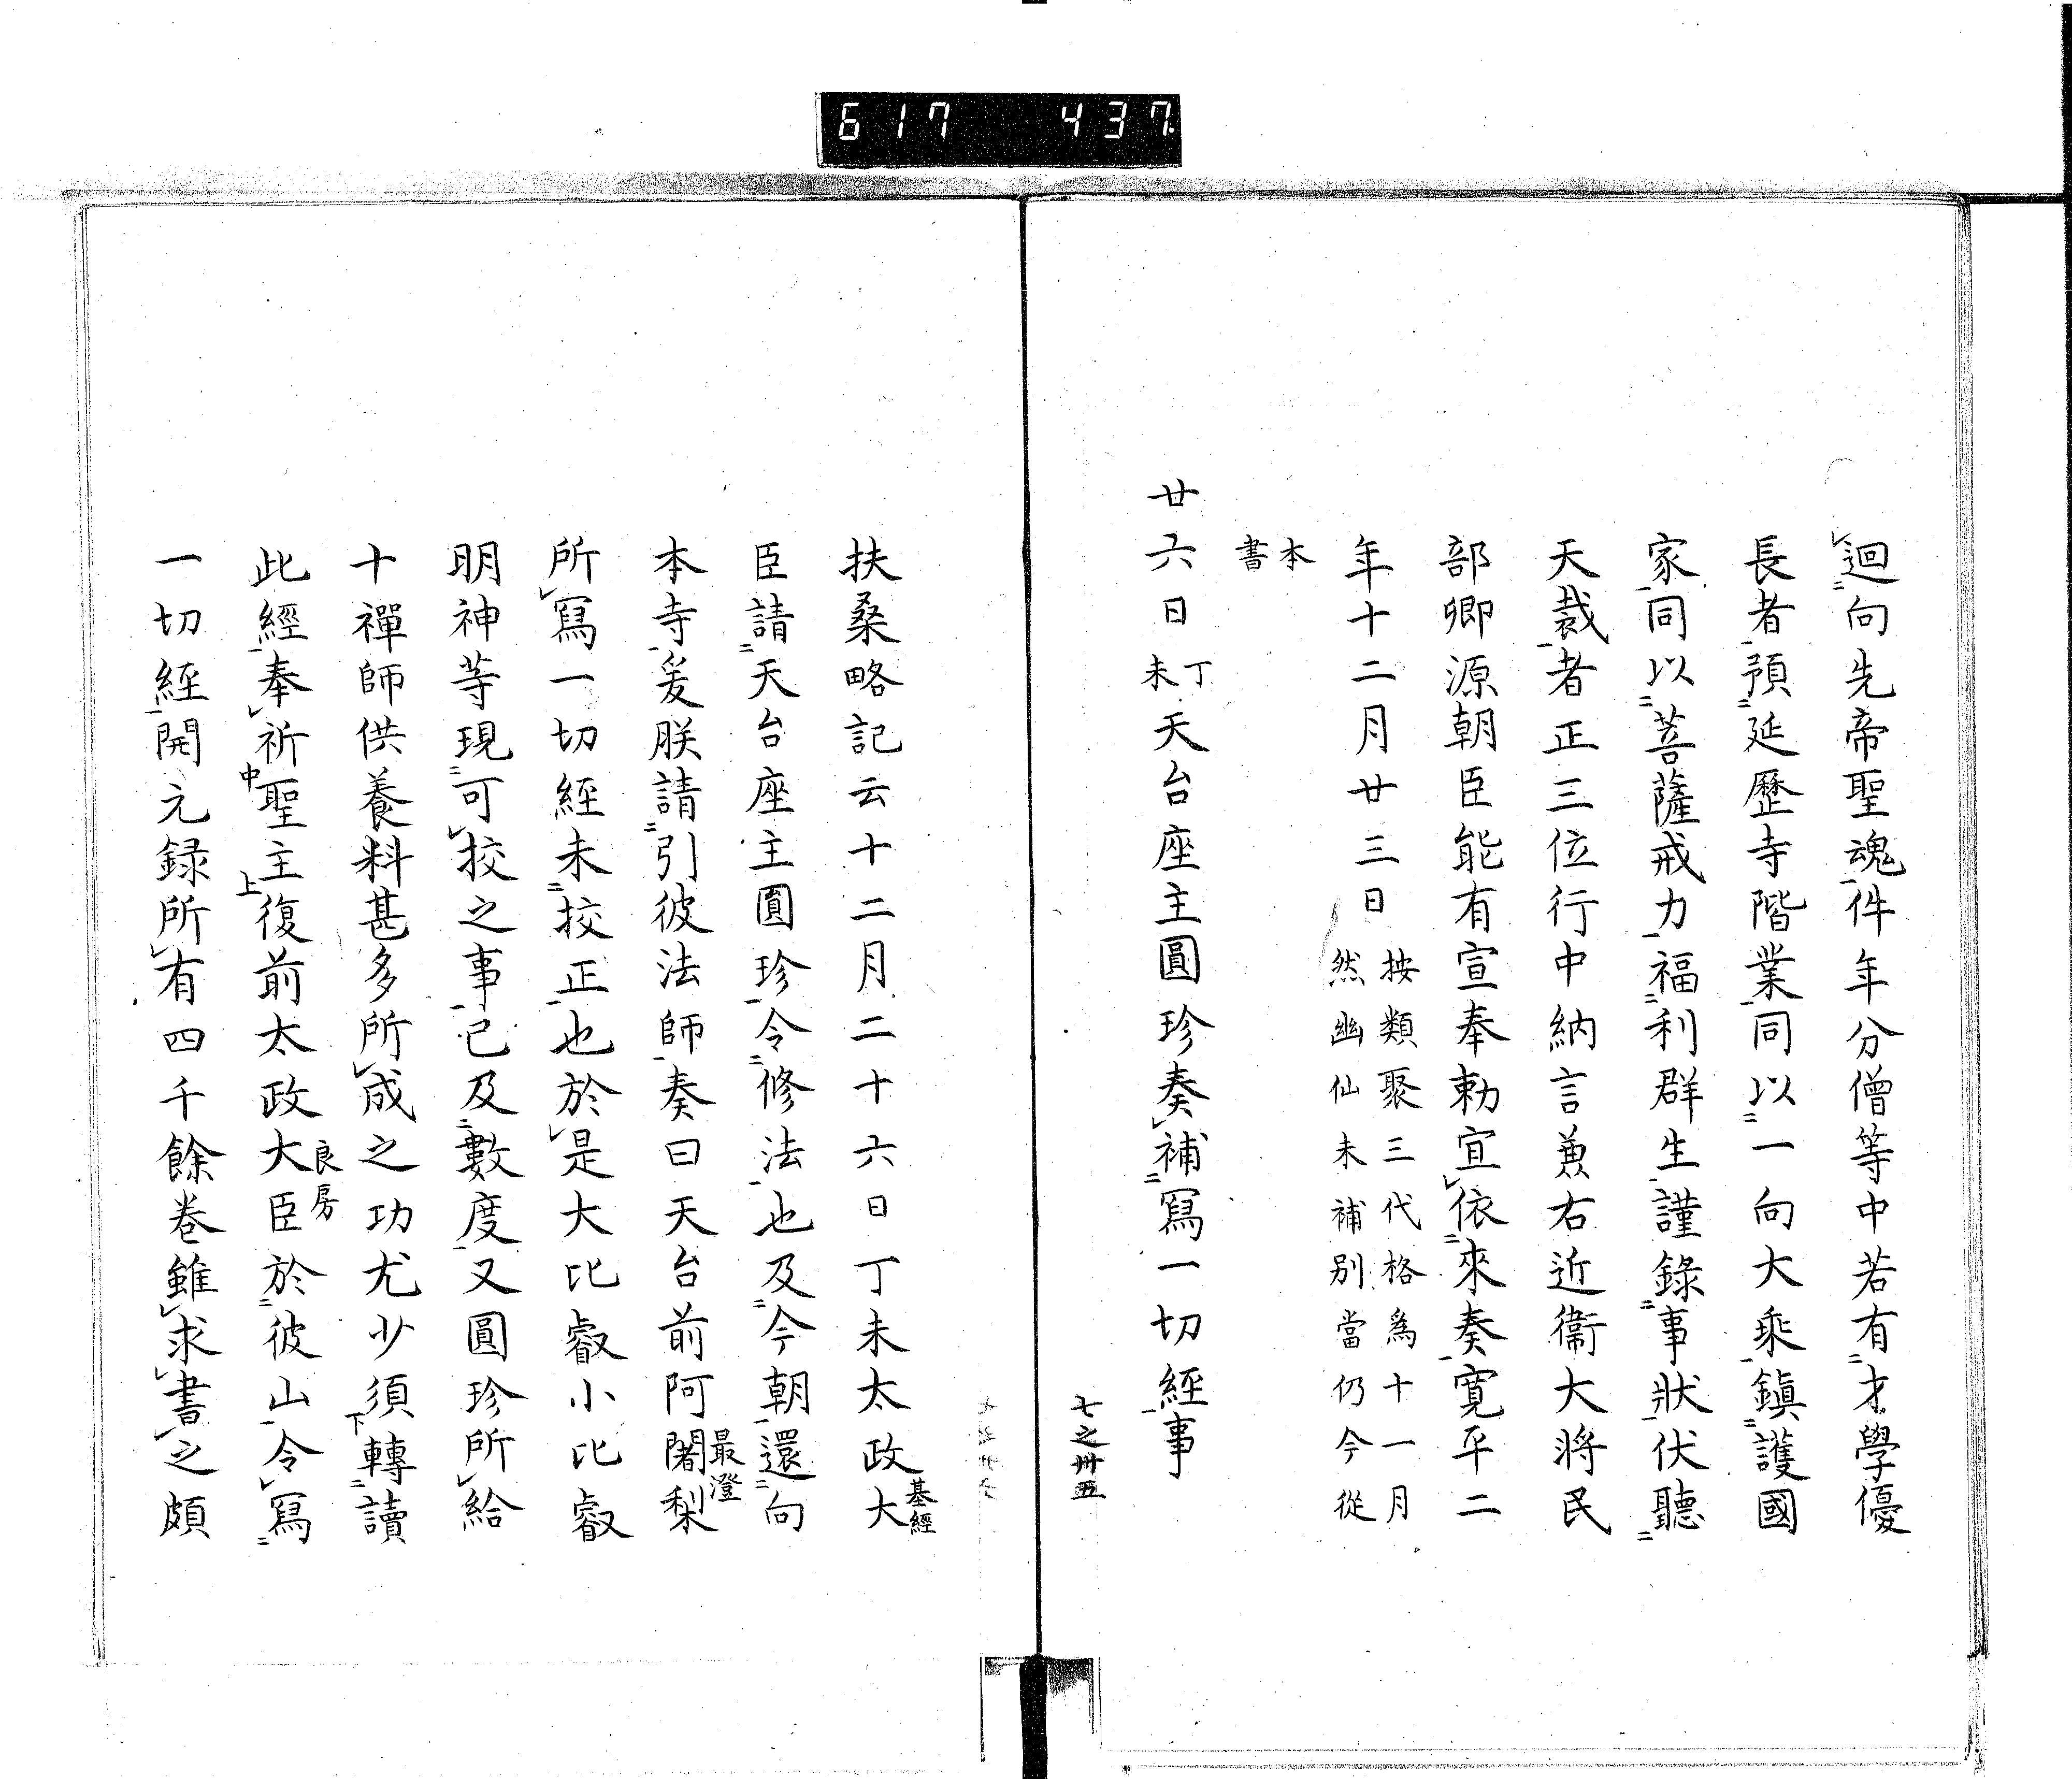 617 437
迴向先帝聖魂件年分僧等中若有才學優
長者預延歷寺階業同以一向大乘鎭護國
家同以菩薩戒力福利群生謹錄事狀伏聽
天裁者正三位行中納言兼右近衞大將民
部卿源朝臣能有宣奉勅宣依來奏寛平二
年十二月廿三日
按類聚三代格爲十一月
然幽仙未補別當仍今從
本
書
廿六日丁未天台座主圓珍奏補寫一切經事
七之卅五
扶桑略記云十二月二十六日丁未太政大基經
臣請天台座主圓珍令修法也及今朝還向
本寺爰朕請引彼法師奏曰天台前阿闍梨最澄
所寫一切經未挍正也於是大比叡小比叡
明神等現可挍之事已及數度又圓珍所給
十禪師供養料甚多所成之功尤少須下轉讀
此經奉祈中聖主上復前太政大臣良房於彼山令寫
一切經開元録所有四千餘卷雖求書之頗